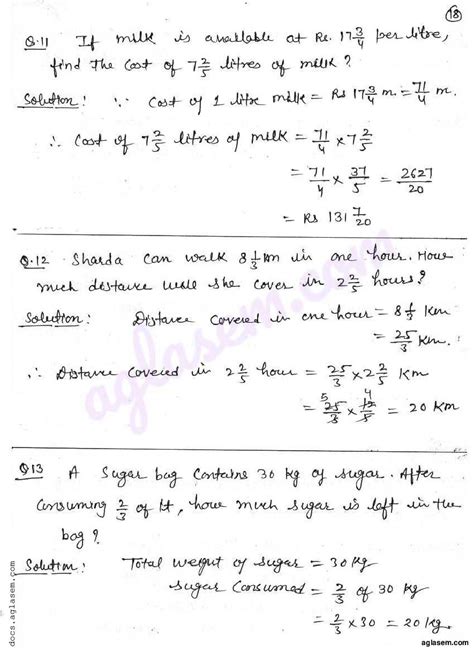 18
Q.11 If milk is available at Rs. 17 3/4 per litre,
find the cost of 7 2/5 litres of milk?
Solution: ∵ Cost of 1 litre milk = Rs 17 3/4 m = 71/4 m.
∴ Cost of 7 2/5 litres of milk = 71/4 × 7 2/5
= 71/4 × 37/5 = 2627/20
= Rs 131 7/20
Q.12 Sharda can walk 8 1/3 km in one hour. How
much distance will she cover in 2 2/5 hours?
Solution: Distance covered in one hour = 8 1/3 Km
= 25/3 Km.
∴ Distance covered in 2 2/5 hour = 25/3 × 2 2/5 Km
= 25/3 × 12/5 = 20 Km
5 4
Q13 A Sugar bag contains 30 kg of sugar. After
consuming 2/3 of it, how much sugar is left in the
bag?
Solution: Total weight of sugar = 30 kg
sugar consumed = 2/3 of 30 kg
= 2/3 × 30 = 20 kg.
aglasem.com
docs.aglasem.com
aglasem.com